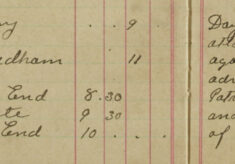 . . 9 Da
dham 11 aga
adr
End 8.30 Patr
te 9 30 and
End 10 . . . of